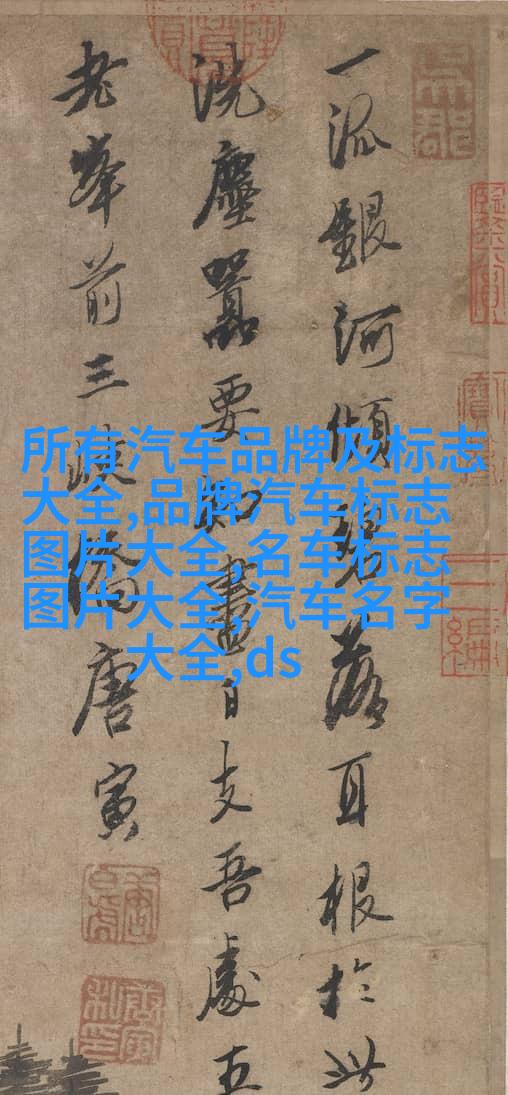 一派銀河傾碧落耳根於此
洗塵囂要知盡日支吾處五
老峯前三峽橋唐寅
所有汽车品牌及标志
大全,品牌汽车标志
图片大全,名车标志
图片大全,汽车名字
大全,ds